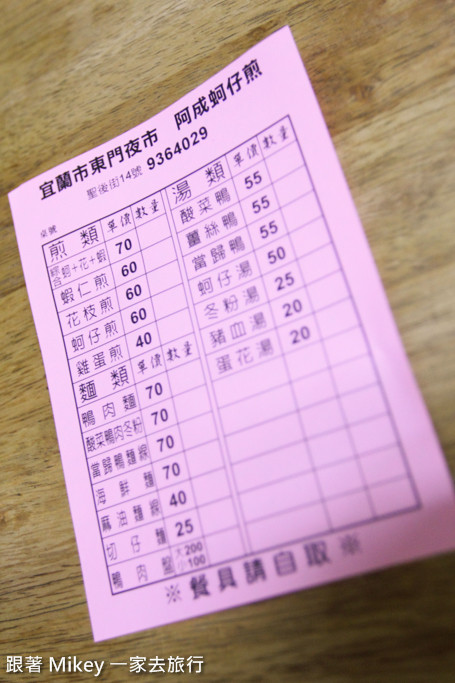 宜蘭市東門夜市 阿成蚵仔煎
聖後街14號 9364029
桌號
煎類 單價 數量
綜合 蚵+花+蝦 70
蝦仁煎 60
花枝煎 60
蚵仔煎 60
雞蛋煎 40
麵類 單價 數量
鴨肉麵 70
酸菜鴨肉冬粉 70
當歸鴨麵線 70
海鮮麵 70
麻油麵線 40
切仔麵 25
鴨肉 大200 小100
湯類 單價 數量
酸菜鴨 55
薑絲鴨 55
當歸鴨 55
蚵仔湯 50
冬粉湯 25
豬血湯 20
蛋花湯 20
※餐具請自取※
跟著 Mikey 一家去旅行